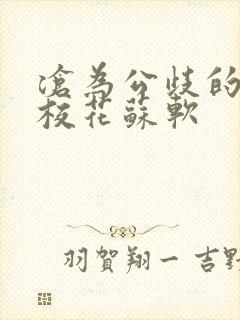 滄為公歧的
校花蘇軟
羽賀翔一 吉野